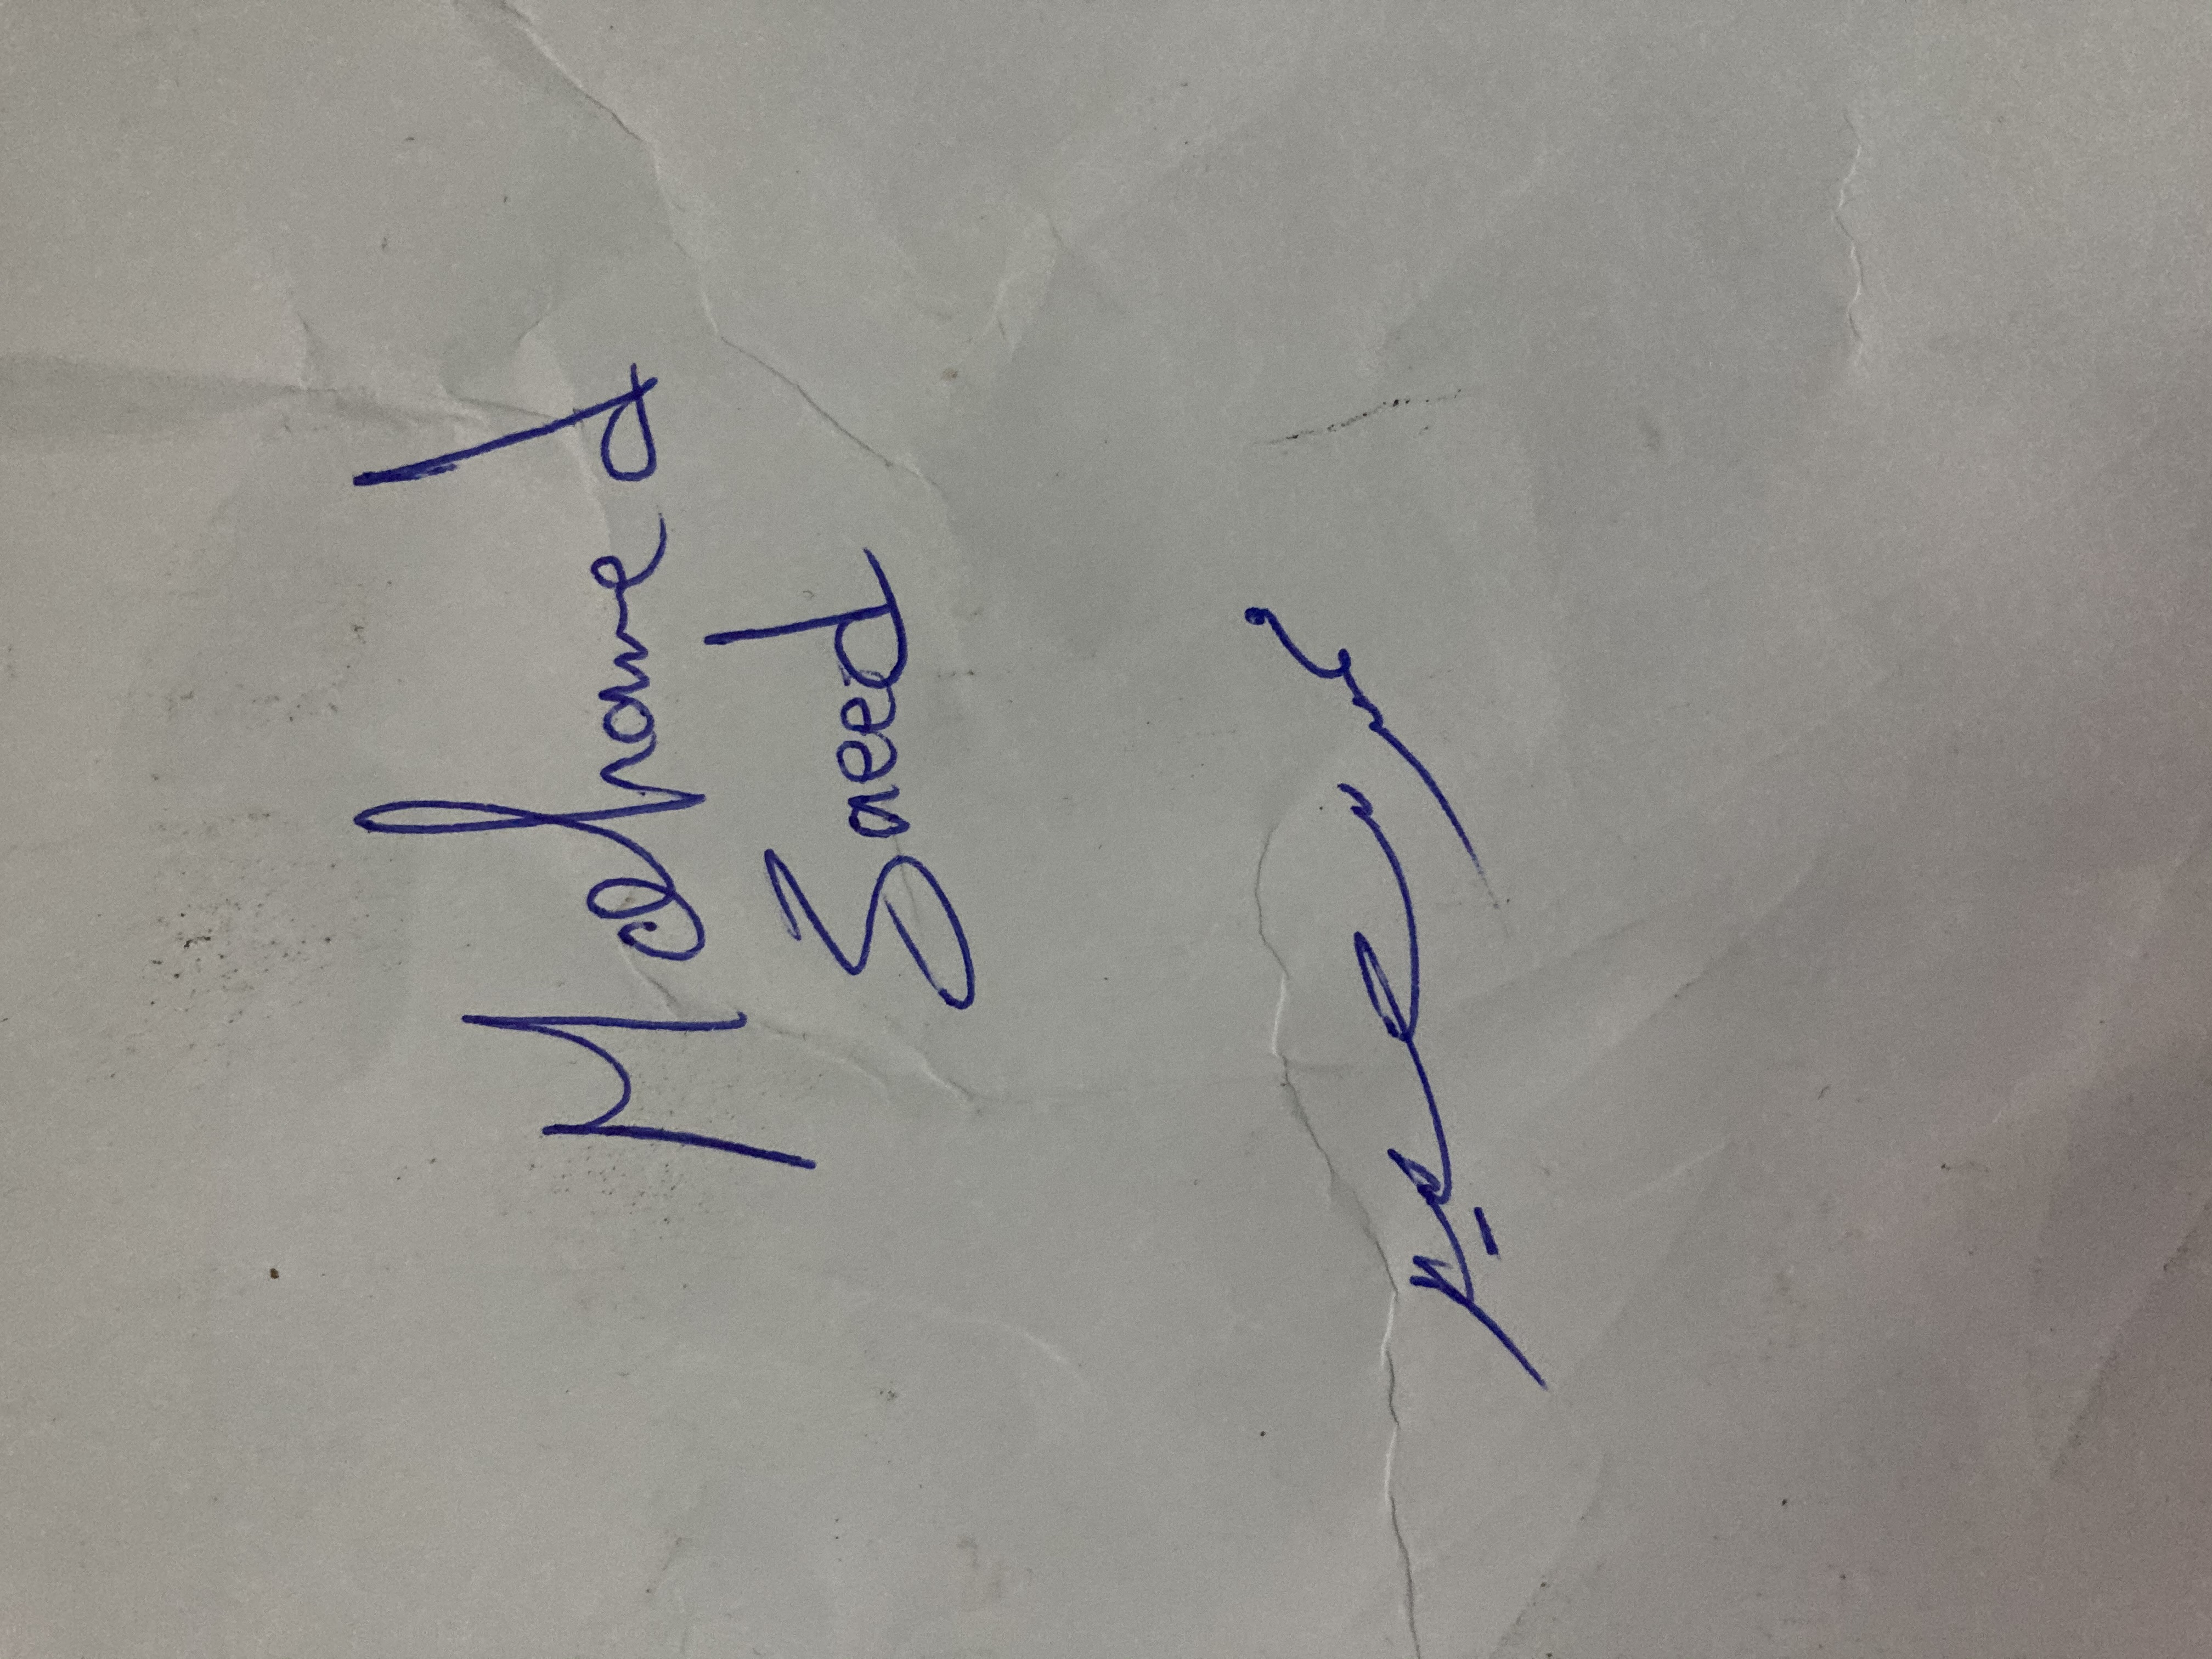 Mohamed
Saeed
محمد سعيد